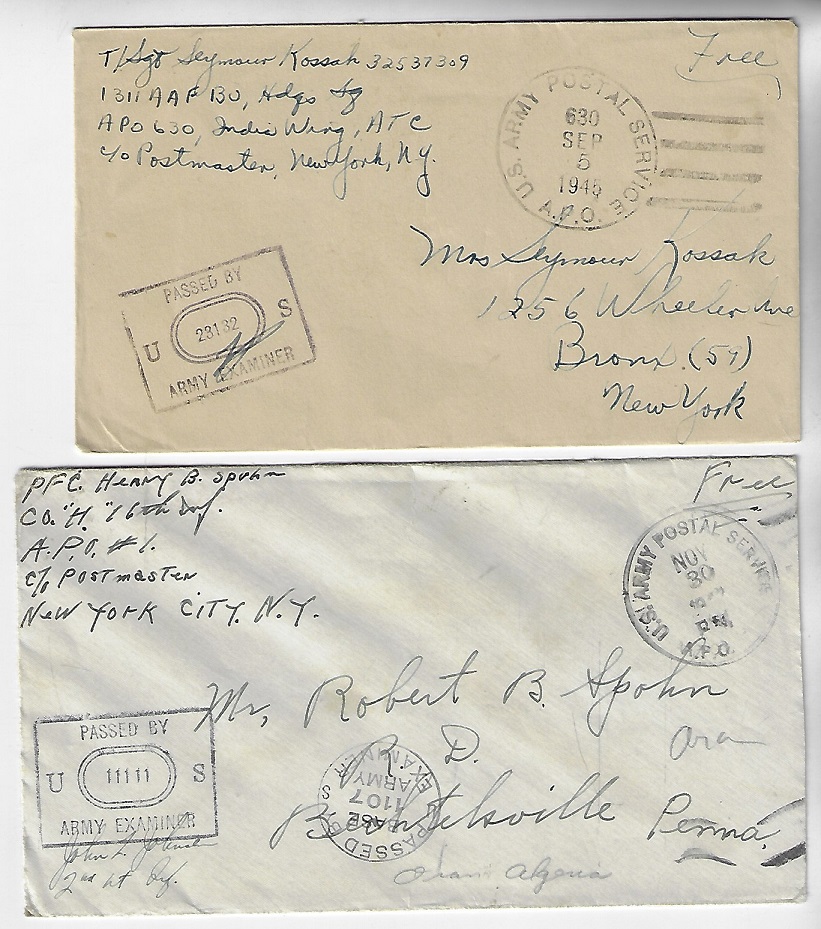 T/Sgt Seymour Kossak 32537309
1311 AAF BU, Hdqs Sq
APO 630, India Wing, ATC
c/o Postmaster, New York, N.Y.
Free
U.S. ARMY POSTAL SERVICE
630
SEP
5
1945
A.P.O.
Mrs Seymour Kossak
1256 Wheeler Ave
Bronx (59)
New York
PASSED BY
U 23132 S
ARMY EXAMINER
PFC. Henry B. Spohn
Co. "H." 16th Inf.
A.P.O. #1.
c/o Postmaster
New York City. N.Y.
Free
U.S. ARMY POSTAL SERVICE
NOV
30
PM
A.P.O.
Mr. Robert B. Spohn
R. D.
Oran
Bechtelsville Penna.
PASSED BY
U 11111 S
ARMY EXAMINER
John
2nd Lt Inf.
PASSED
BASE
1107
ARMY
EXAMINER
S
Oran Algeria